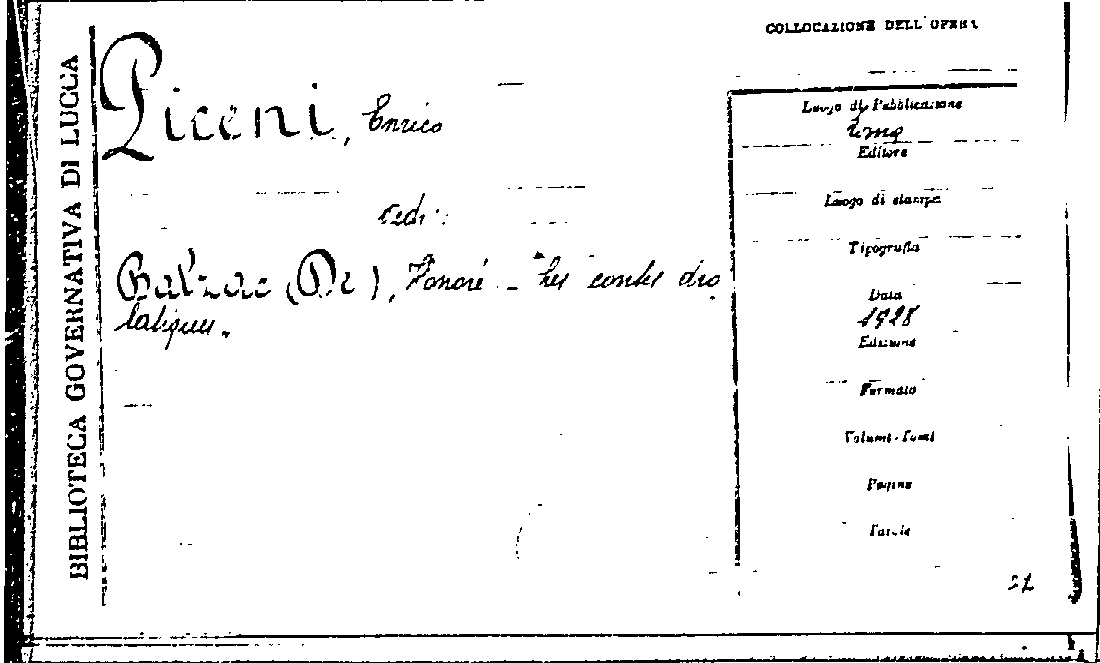 BIBLIOTECA GOVERNATIVA DI LUCCA
Piceni, Enrico
vedi:
Balzac (De), Honoré - Les contes dro
latiques.
COLLOCAZIONE DELL'OPERA
Luogo di Pubblicazione
Editore
Luogo di stampa
Tipografia
Data
1928
Edizione
Formato
Volumi-Tomi
Pagine
Tavole